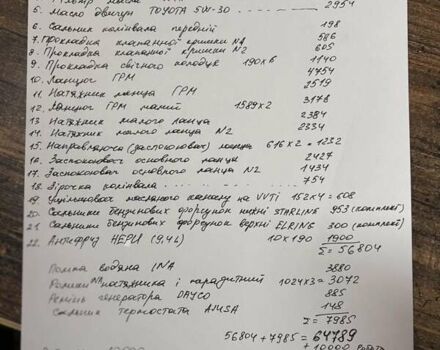 5. Масло двигун TOYOTA 5W-30 2954
6. Сальник колінвала передній 198
7. Прокладка клапанної кришки N1 586
8. Прокладка клапанної кришки N2 605
9. Прокладка свічного колодця 190x6 1140
10. Ланцюг ГРМ 4754
11. Натяжник ланца ГРМ 2519
12. Ланцюг ГРМ малий 1589x2 3178
13. Натяжник малого ланца 2384
14. Натяжник малого ланца N2 2334
15. Направляюча (заспокоювач) ланцюга 616x2 = 1232
16. Заспокоювач основного ланцюга 2427
17. Заспокоювач основного ланца N2 1434
18. Зірочка колінвала 754
19. масляного каналу на VVTi 152x4 = 608
20. Сальники бензинових форсунок нижні STARLINE 953 (комплект)
21. Сальники бензинових форсунок верхні ELRING 300 (комплект)
22. Антифриз HEPU (9,4 L) 10 x 190 1900
Σ = 56804
Помпа водяна INA 3880
Ролики натяжника і паразитний 1024x3 = 3072
Ремінь генератора DAYCO 885
Сальник термостата AJUSA 148
Σ = 7985
56804 + 7985 = 64789
+ 10000 Робота